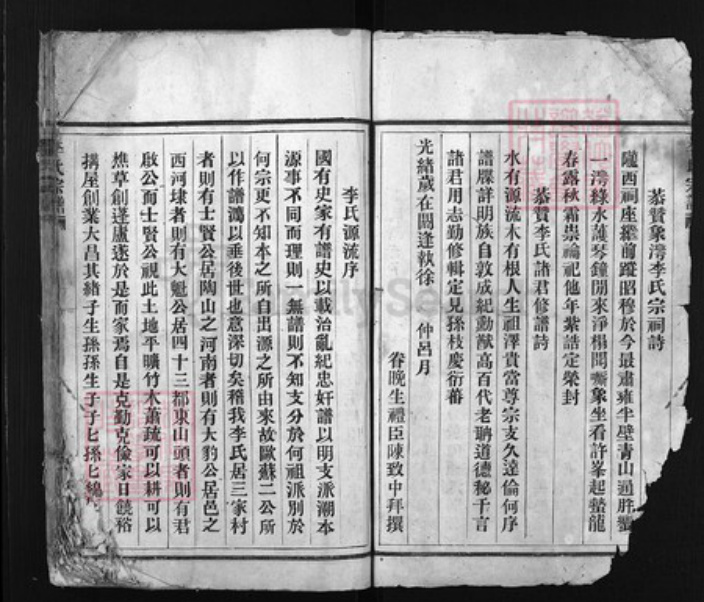 恭贊象灣李氏宗祠詩
隴西祠座繼前蹤昭穆於今最肅雍半壁青山通胙
一灣綠水護琴鐘閒來淨榻問象坐看許峯起蟄龍
春露秋霜崇禴祀他年紫誥定榮封
恭贊李氏諸君修譜詩
水有源流木有根人生祖澤貴當尊宗支久遠倫何序
譜牒詳明族自敦成紀勳猷高百代老聃道德秘千言
諸君用志勤修輯定見孫枝慶衍蕃
光緒歲在閼逢執徐 仲呂月
眷晚生禮臣陳致中拜撰
李氏宗譜
李氏源流序
國有史家有譜史以載治亂紀忠奸譜以明支派溯本
源事不同而理則一無譜則不知支分於何祖派別於
何宗更不知本之所自出源之所由來故歐蘇二公所
以作譜鴻以垂後世也意深切矣稽我李氏居三家村
者則有士賢公居陶山之河南者則有大豹公居邑之
西河埭者則有大魁公居四十三都東山頭者則有君
啟公而士賢公視此土地平曠竹木蕭疏可以耕可以
樵草創蓬廬遂於是而家焉自是克勤克儉家日饒裕
搆屋創業大昌其緒子生孫孫生子子匕孫匕綿